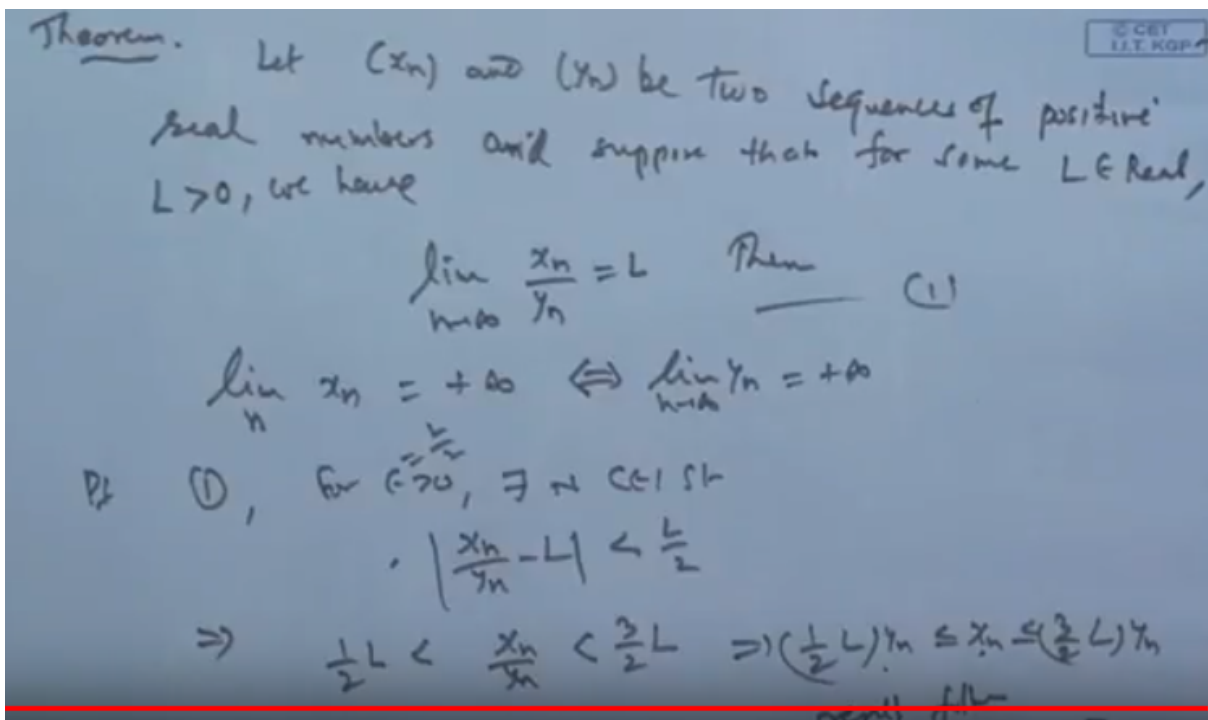 Theorem.
© CET
I.I.T. KGP
Let (xn) and (yn) be two sequences of positive
real numbers and suppose that for some L ∈ Real,
L > 0, we have
lim n→∞ xn/yn = L Then —— (1)
lim n xn = +∞ ⇔ lim n→∞ yn = +∞
Pf ①, for ε > 0, = L/2 ∃ N (ε) st
| xn/yn - L | < L/2
⇒ 1/2 L < xn/yn < 3/2 L ⇒ (1/2 L) yn ≤ xn ≤ (3/2 L) yn